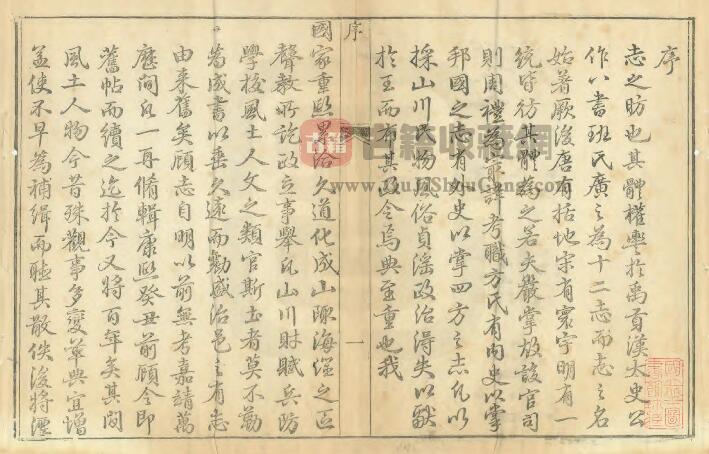 序
志之昉也其體權輿於禹貢漢太史公
作八書班氏廣之為十二志而志之名
始著厥後唐有括地宋有寰宇明有一
統皆仿其體為之若夫嚴掌故設官司
則周禮為最詳考職方氏有內史以掌
邦國之志有外史以掌四方之志凡以
採山川民物風俗貞淫政治得失以獻
於王而布其政令焉典至重也我
國家重熙累洽久道化成山陬海澨之區
聲教所訖政立事舉凡山川財賦兵防
學校風土人文之類官斯土者莫不勒
為成書以垂久遠而勸盛治邑之有志
由來舊矣顧志自明以前無考嘉靖萬
歷間凡一再脩輯康熙癸丑前顧令即
舊帖而續之迄於今又將百年矣其間
風土人物今昔殊觀事多變革典宜增
益使不早為補緝而聽其散佚後將湮
序
一
古籍
古籍收藏网
www.GuJiShouCang.com